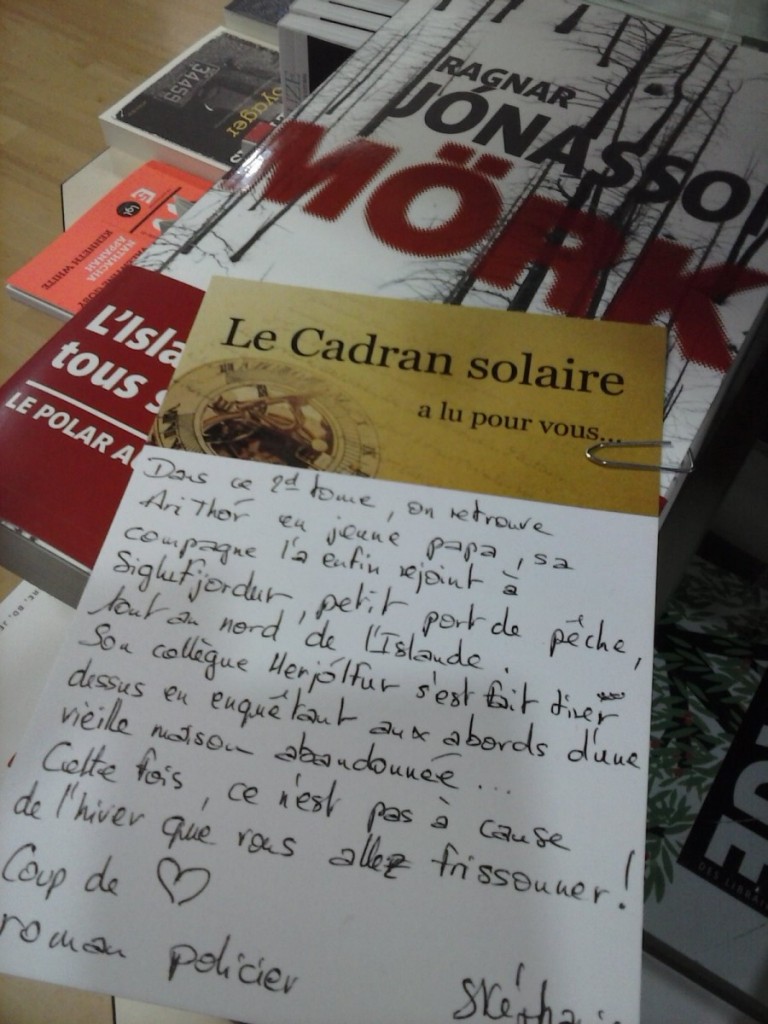 34459
oyager
RAGNAR
JÓNASSO
MÖRK
NATHACHA
APPANAH
KENNETH WHITE
L'Isla
tous s
LE POLAR AU
Le Cadran solaire
a lu pour vous...
Dans ce 2d tome, on retrouve
Ari Thór en jeune papa, sa
compagne l'a enfin rejoint à
Siglufjordur, petit port de pêche,
tout au nord de l'Islande.
Son collègue Herjólfur s'est fait tirer
dessus en enquêtant aux abords d'une
vieille maison abandonnée...
Cette fois, ce n'est pas à cause
de l'hiver que vous allez frissonner!
Coup de ♡
roman policier
DES LIBRAIR